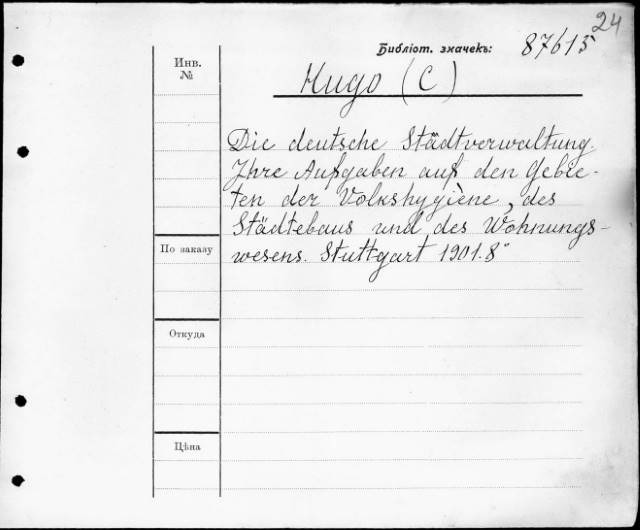 24
Библіот. значекъ: 87615
Инв.
№
Hugo (C)
Die deutsche Städtverwaltung.
Ihre Aufgaben auf den Gebie-
ten der Volkshygiène, des
Städtebaus und des Wohnungs-
wesens. Stuttgart 1901. 8°
По заказу
Откуда
Цѣна